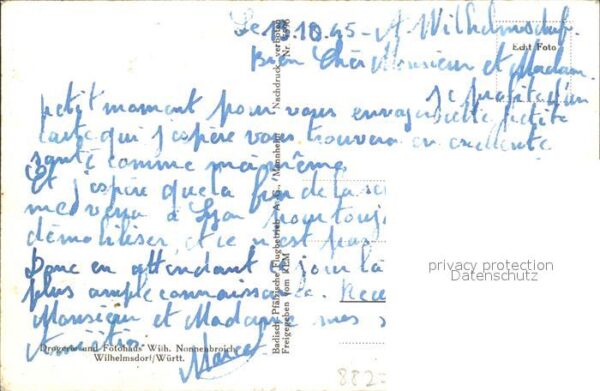 Le 18.10.45 - A Wilhelmsdorf
Bien Cher Monsieur et Madame
je profite d'un
petit moment pour vous envoyer cette petite
carte qui j'espère vous trouvera en excellente
santé comme moi même
Et j'espère que la fin de la
me verra à Lyon pour
démobiliser, et ce n'est pas
Donc en attendant jour là
plus ample connaissance. Rece
Monsieur et Madame mes
Amitiés
Marcel
Echt Foto
Nachdruck verboten
Nr.
Badisch-Pfälzische Flugbetrieb A.-G., Mannheim
Freigegeben vom RLM
Drogerie und Fotohaus Wilh. Nonnenbroich
Wilhelmsdorf/Württ.
privacy protection
Datenschutz